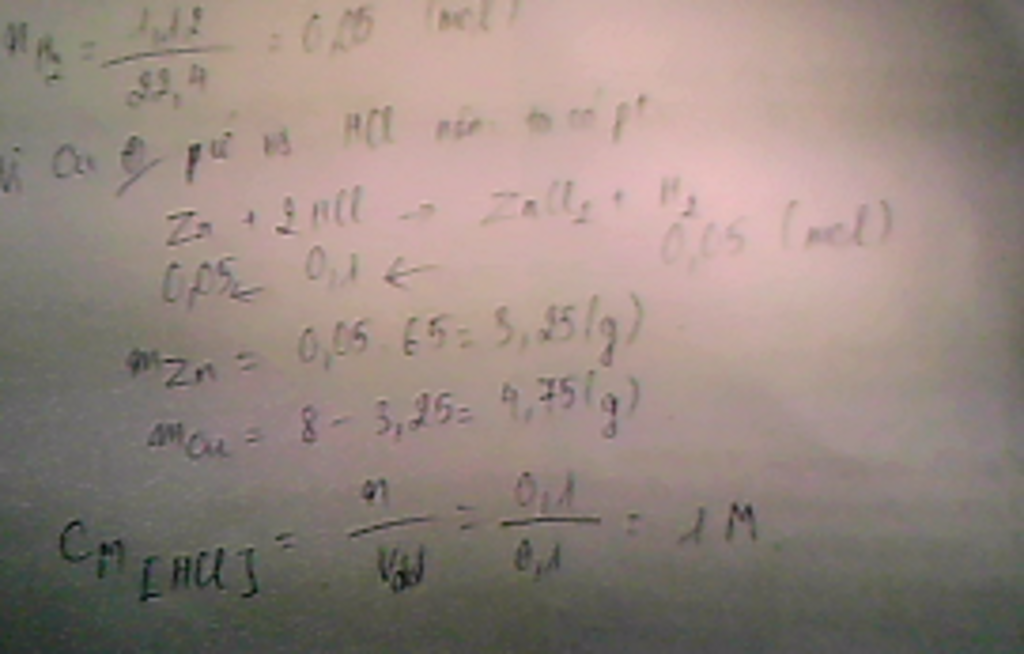 n H2 = 1,12 / 22,4 = 0,05 (mol)
Vì Cu pứ vs HCl nên ta có pt
Zn + 2HCl → ZnCl2 + H2
0,05 ← 0,1 ← 0,05 (mol)
mZn = 0,05 . 65 = 3,25 (g)
mCu = 8 - 3,25 = 4,75 (g)
CM [HCl] = n / Vdd = 0,1 / 0,1 = 1 M